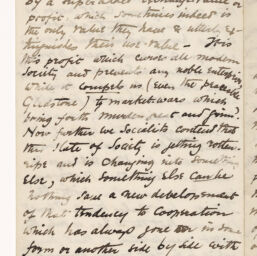 by a superable exchange value or
profit which sometimes indeed is
the only value they have & utterly ex-
tinguishes their use-value - It is
this profit which curses all modern
Society and prevents any noble enterprise,
while it compels us (even the peaceable
Gladstone) to market-wars which
bring forth murder pest and famine.
Now further we Socialists contend that
this State of Society is getting rotten-
ripe and is changing into Something
else, which Something else can be
nothing save a new development
of that tendency to Cooperation
which has always gone on in some
form or another side by side with